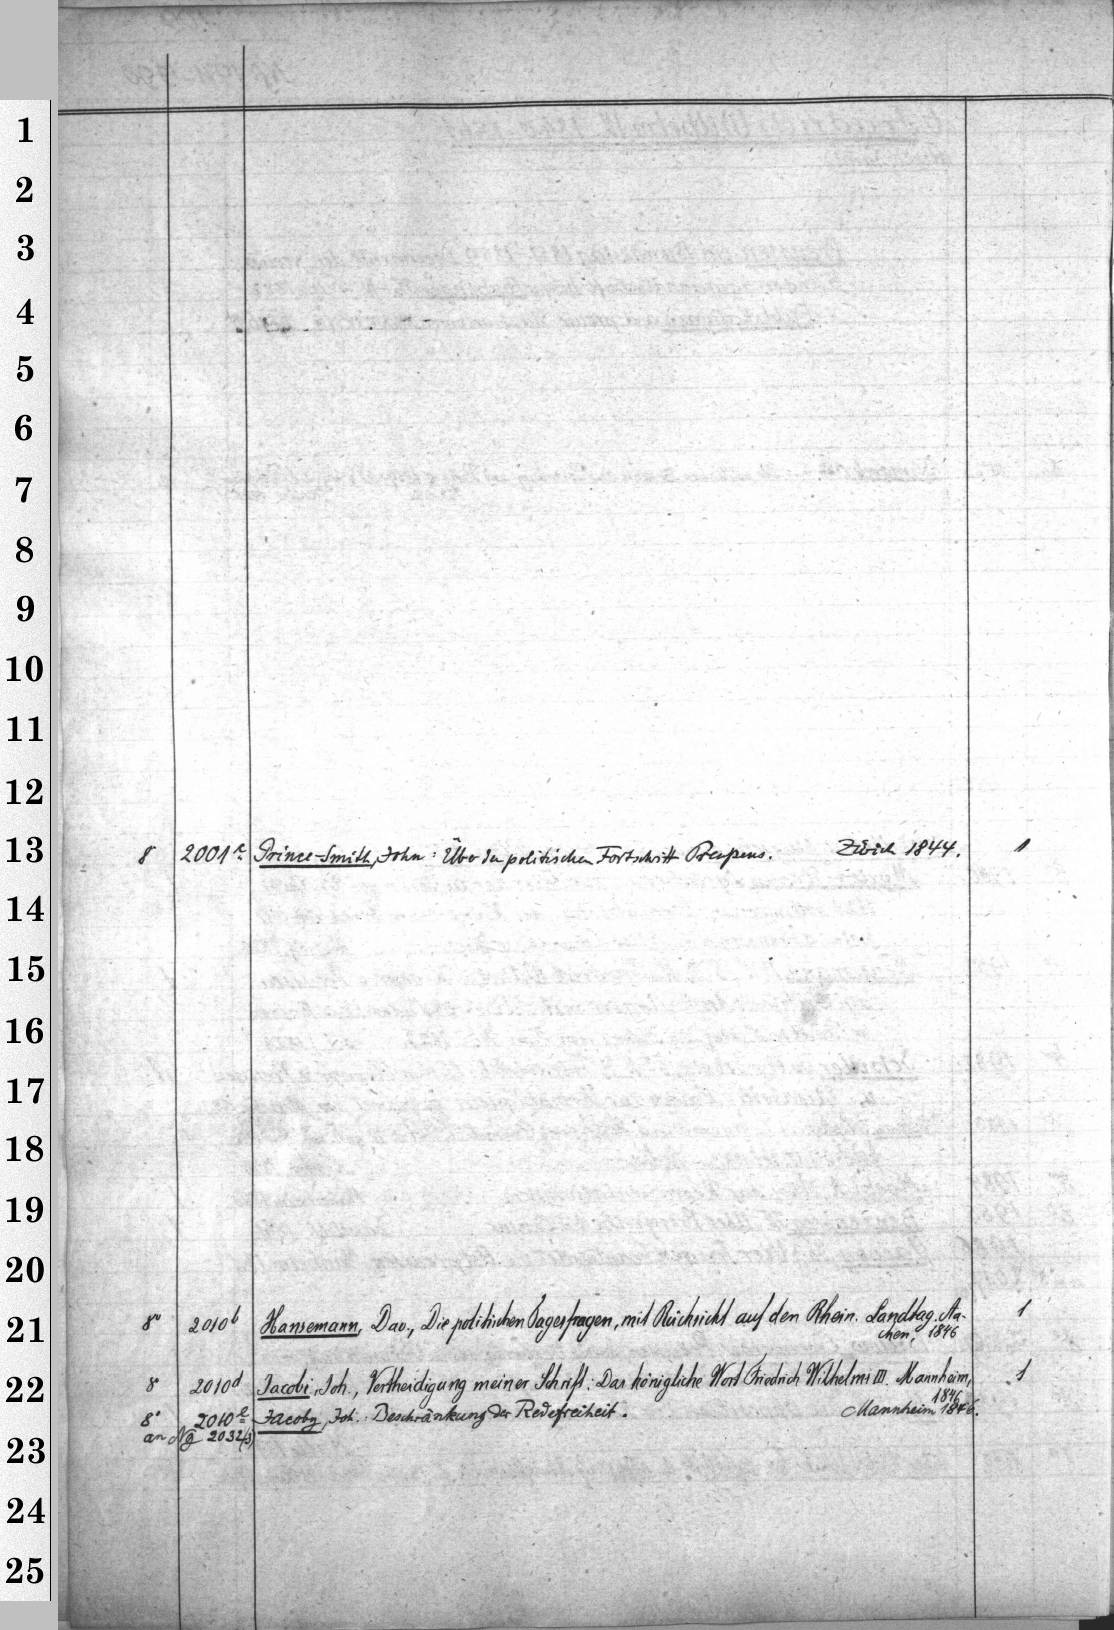 1
2
3
4
5
6
7
8
9
10
11
12
13
8 2001 c Prince-Smith, John: Über den politischen Fortschritt Preußens. Zürich 1844. 1
14
15
16
17
18
19
20
21
8° 2010 b Hansemann, Dav., Die politischen Tagesfragen, mit Rücksicht auf den Rhein. Landtag. Aa-
chen, 1846 1
22
8 2010 d Jacobi, Joh., Vertheidigung meiner Schrift: Das königliche Wort Friedrich Wilhelms III. Mannheim, 1
1846
8° 2010 e Jacoby, Joh. Beschränkung der Redefreiheit. Mannheim 1846.
an Ng 2032(3)
23
24
25